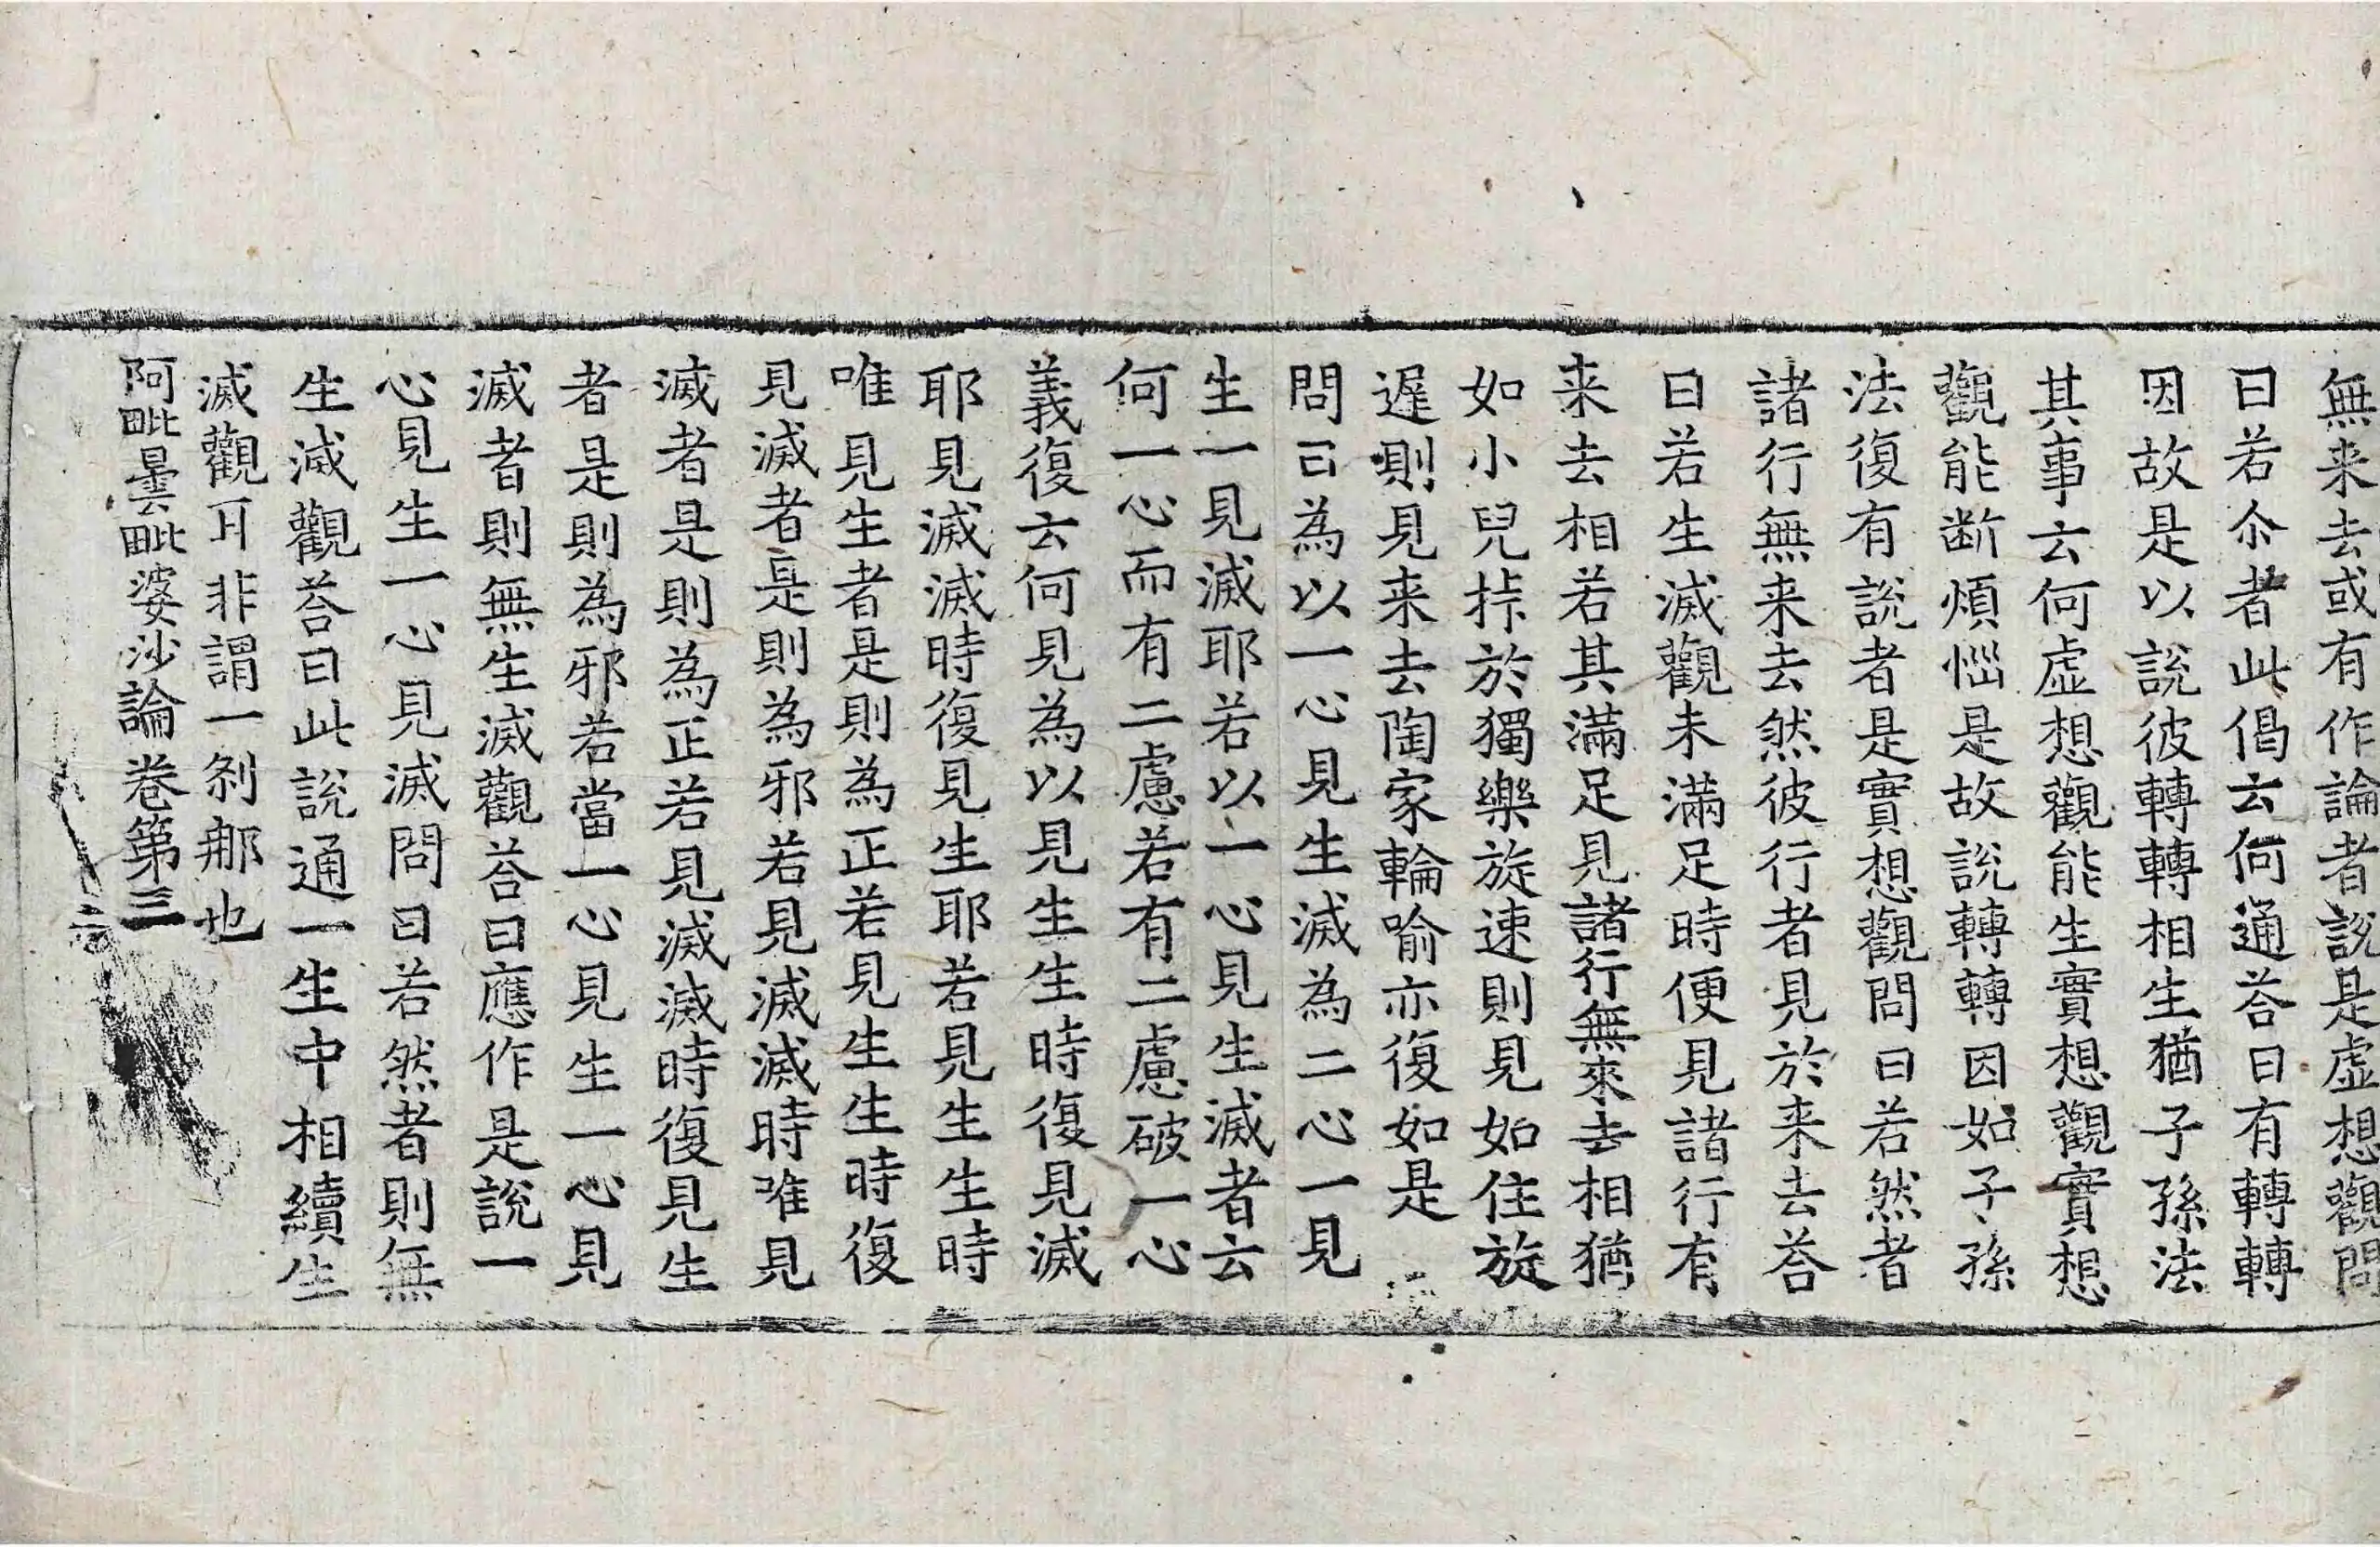 無来去或有作論者說是虛想觀問
曰若尒者此偈云何通荅曰有轉轉
因故是以說彼轉轉相生猶子孫法
其事云何虛想觀能生實想觀實想
觀能断煩惱是故說轉轉因如子孫
法復有說者是實想觀問曰若然者
諸行無来去然彼行者見於来去荅
曰若生滅觀未滿足時便見諸行有
来去相若其滿足見諸行無來去相猶
如小兒㧊於獨樂旋速則見如住旋
遲則見来去陶家輪喻亦復如是
問曰為以一心見生滅為二心一見
生一見滅耶若以一心見生滅者云
何一心而有二慮若有二慮破一心
義復云何見為以見生生時復見滅
耶見滅滅時復見生耶若見生生時
唯見生者是則為正若見生生時復
見滅者是則為邪若見滅滅時唯見
滅者是則為正若見滅滅時復見生
者是則為邪若當一心見生一心見
滅者則無生滅觀荅曰應作是說一
心見生一心見滅問曰若然者則無
生滅觀荅曰此說通一生中相續生
滅觀耳非謂一剎那也
阿毗曇毗婆沙論卷第三